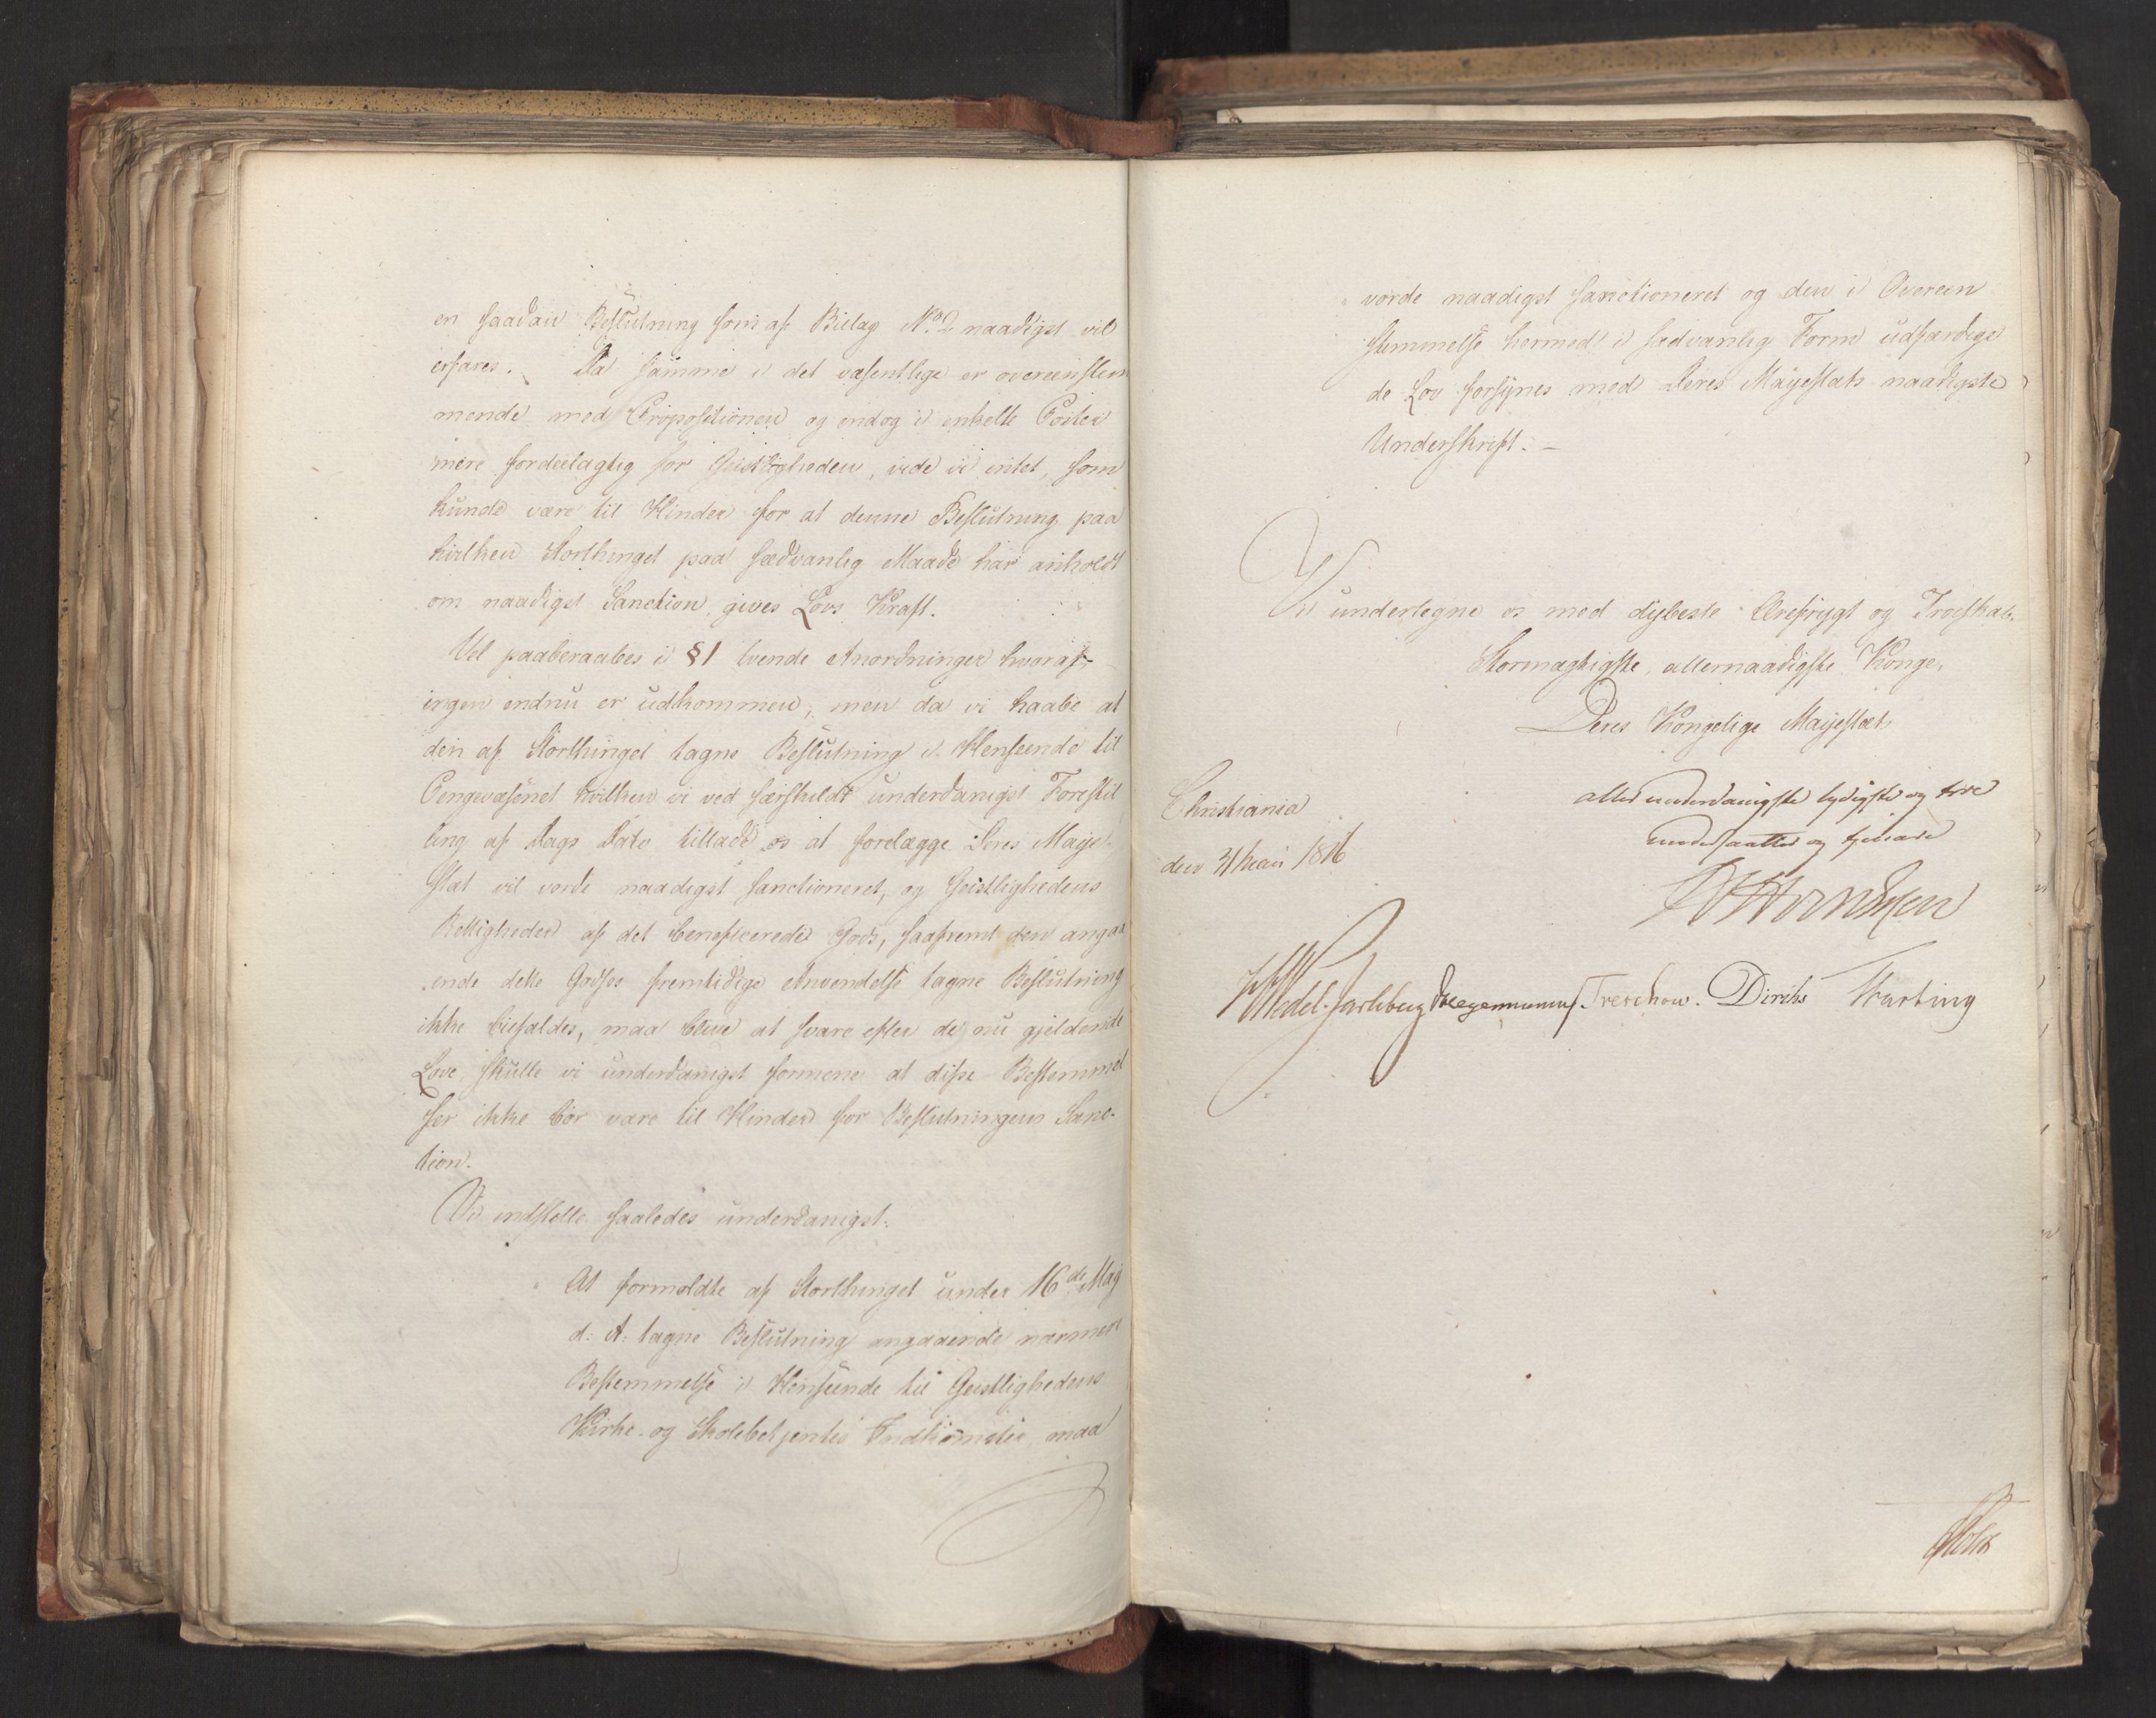 en saadan Beslutning som af Bielag No. 2 naadigst vil
erfares. Da samme i det væsentlige er overeenstem
mende med Propositionen og endog i enkelte Poster
mere fordeelagtig for Geistligheden, vide vi intet, som
kunde være til Hinder for at denne Beslutning paa
hvilken Storthinget paa sædvanlig Maade har anholdt
om naadigst Sanction, gives Lovs Kraft.
Vel paaberaabes i § 1 tvende Anordninger hvoraf
ingen endnu er udkommen; men da vi haabe at
den af Storthinget tagne Beslutning i Henseende til
Pengevæsenet hvilken vi ved særskildt underdanigst Forestil
ling af Dags Dato tillade os at forelægge Deres Maje
stæt vil vorde naadigst sanctioneret, og Geistlighedens
Rettigheder af det beneficerede Gods, saafremt den angaa
ende dette Godses fremtidige Anvendelse tagne Beslutning
ikke biefaldes, maa blive at svare efter de nu gjeldende
Love skulle vi underdanigst formene at disse Bestemmel
ser ikke bör være til Hinder for Beslutningens Sanc-
tion.
Vi indstille saaledes underdanigst:
At formeldte af Storthinget under 16de Maj
d: A: tagne Beslutning angaaende nærmere
Bestemmelse i Henseende til Geistlighedens
Kirke- og Skolebetjentes Indkomster, maa
vorde naadigst sanctioneret og den i Overeen
stemmelse hermed i sædvanlig Form udfærdige
de Lov forsynes med Deres Majestæts naadigste
Underskrift. –
Vi undertegne os med dybeste Ærefrygt og Troeskab.
Stormægtigste, allernaadigste Konge,
Deres Kongelige Majestæts
allerunderdanigste lydigste og troe
undersaatter og tjenere
Christiania
den 31 Maii 1816
Wedel-Jarlsberg Treschow. Diriks
Holst